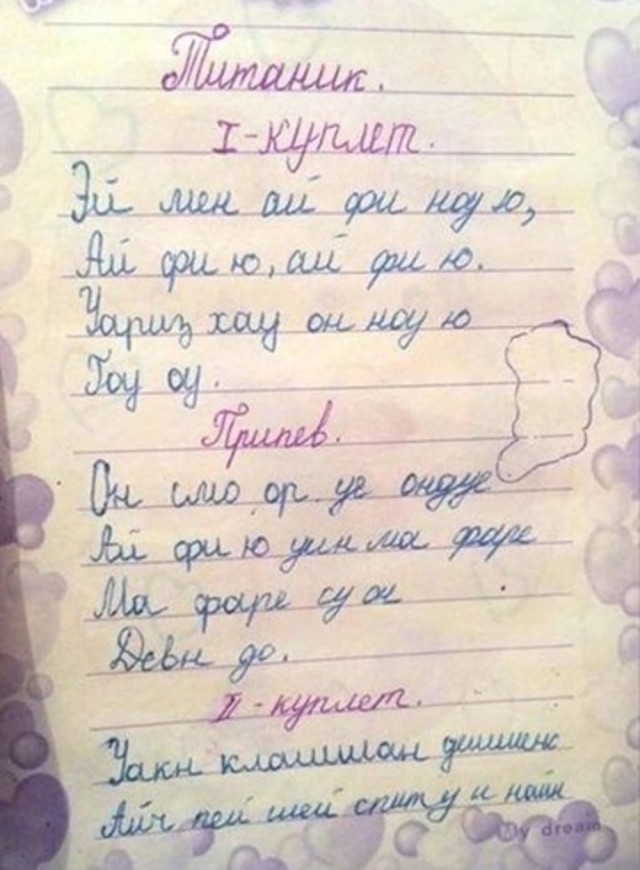 Титаник.
I-куплет.
Эй мен ай фи ноу ю,
Ай фи ю, ай фи ю.
Уариз хау он ноу ю
Гоу оу.
Припев.
Он смо ор уе ондуе
Ай фи ю уин ма фаре
Ма фаре су он
Девн до.
II-куплет.
Уакн клашшан дишиенс
Айч пей шей спит у и найн
My dream